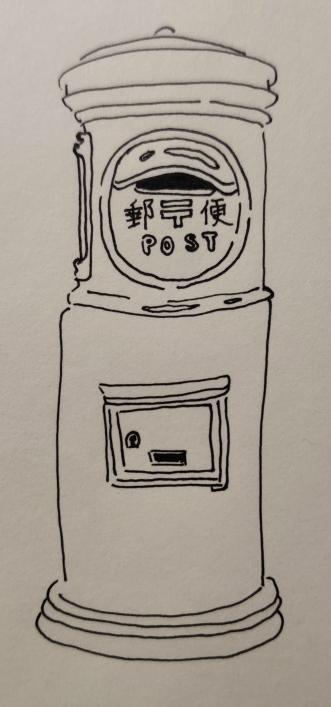 郵〒便
POST